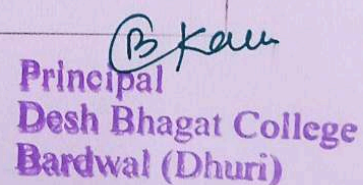 B Kaur
Principal
Desh Bhagat College
Bardwal (Dhuri)